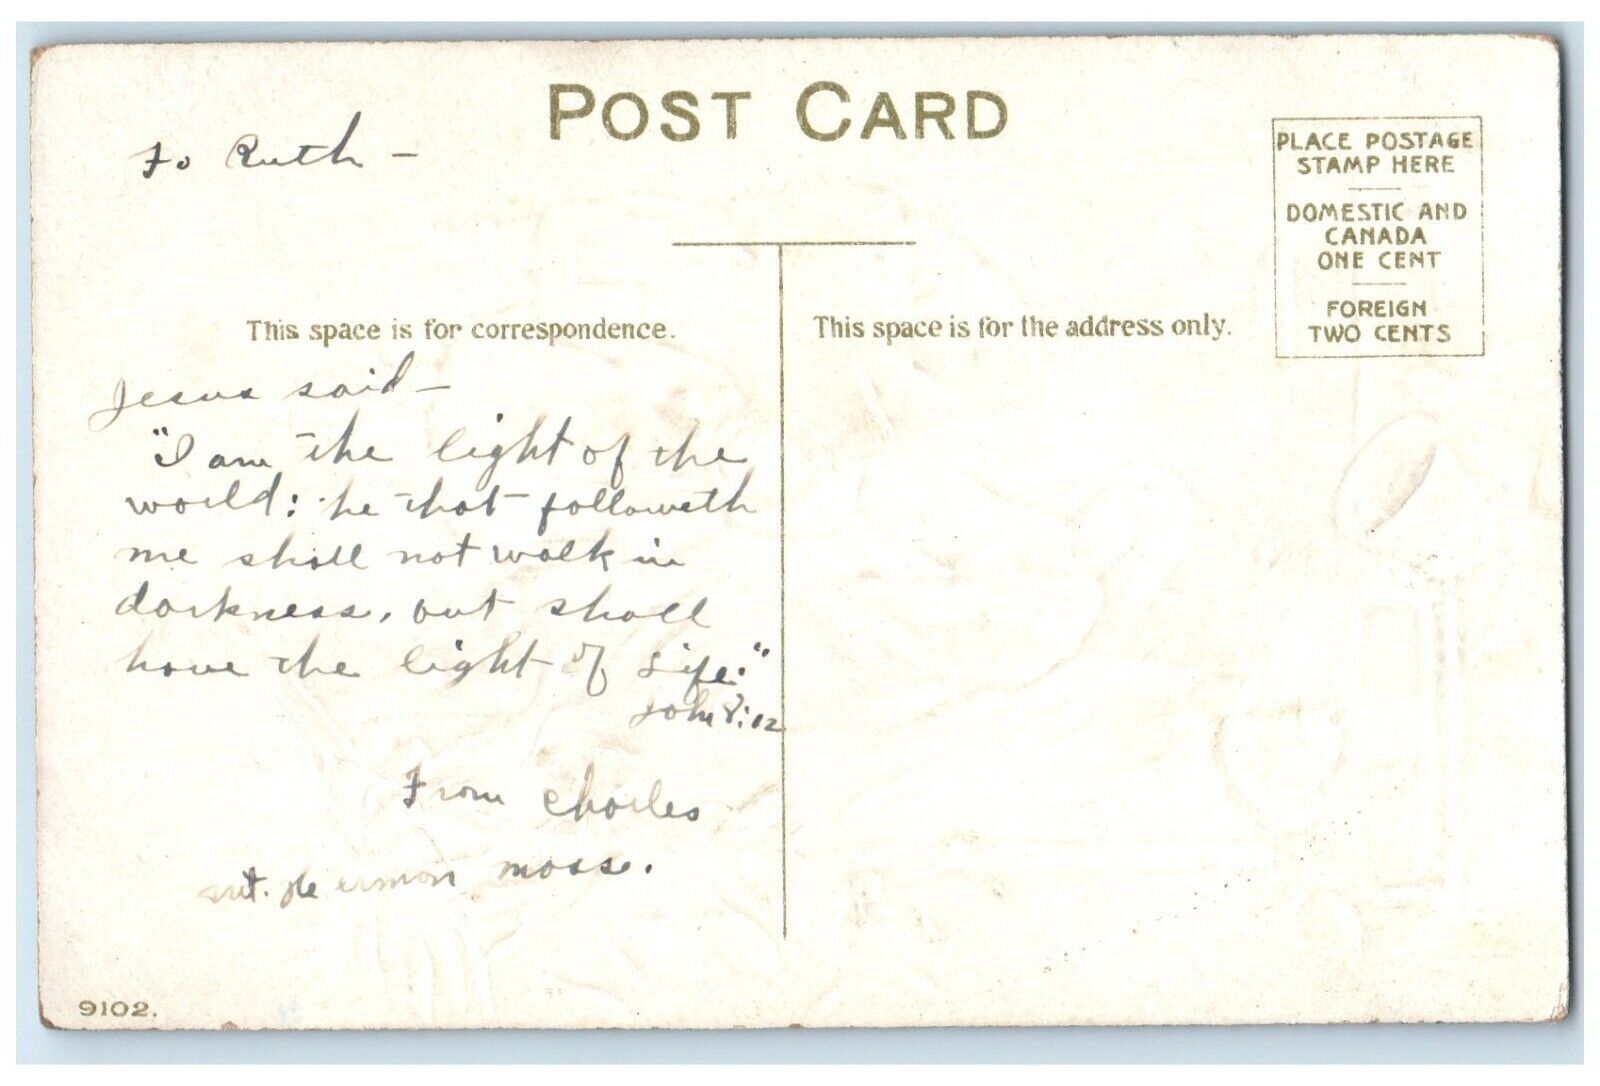 POST CARD
To Ruth —
PLACE POSTAGE
STAMP HERE
DOMESTIC AND
CANADA
ONE CENT
FOREIGN
TWO CENTS
This space is for correspondence.
This space is for the address only.
Jesus said —
"I am the light of the
world: he that followeth
me shall not walk in
darkness, but shall
have the light of life."
John 8:12
From Charles
Mt. Hermon Mass.
9102.